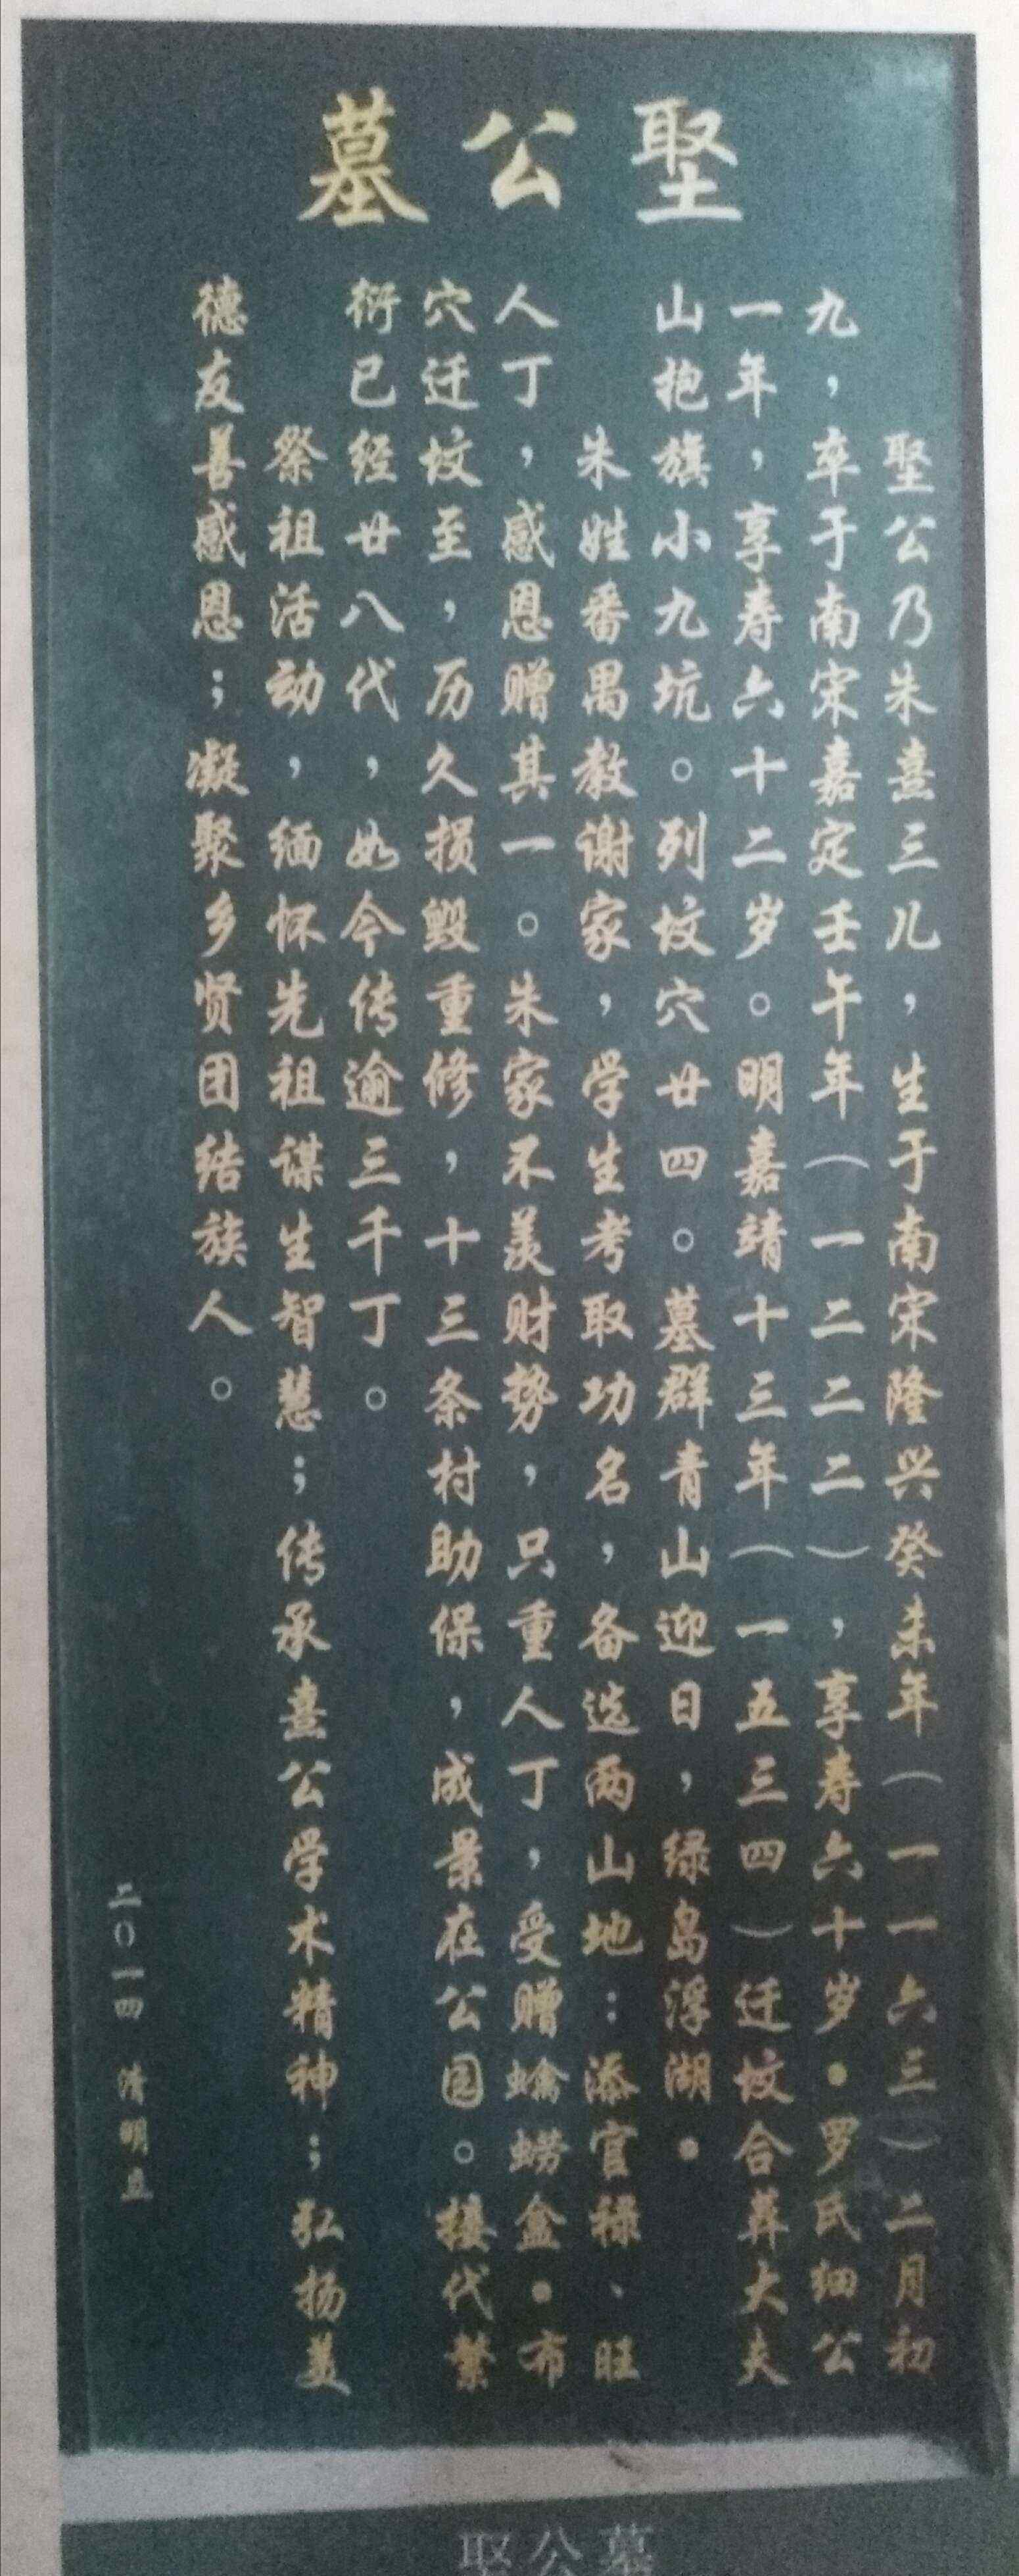 堲公墓
堲公乃朱熹三儿，生于南宋隆兴癸未年（一一六三）二月初
九，卒于南宋嘉定壬午年（一二二二），享寿六十岁。罗氏细公
一年，享寿六十二岁。明嘉靖十三年（一五三四）迁坟合葬大夫
山抱旗小九坑。列坟穴廿四。墓群青山迎日，绿岛浮湖。
朱姓番禺教谢家，学生考取功名，备选两山地：添官禄、旺
人丁，感恩赠其一。朱家不羡财势，只重人丁，受赠螭蟧盒。布
穴迁坟至，历久损毁重修，十三条村助保，成景在公园。接代繁
衍已经廿八代，如今传逾三千丁。
祭祖活动，缅怀先祖谋生智慧；传承熹公学术精神；弘扬美
德友善感恩；凝聚乡贤团结族人。
二〇一四 清明立
堲公墓